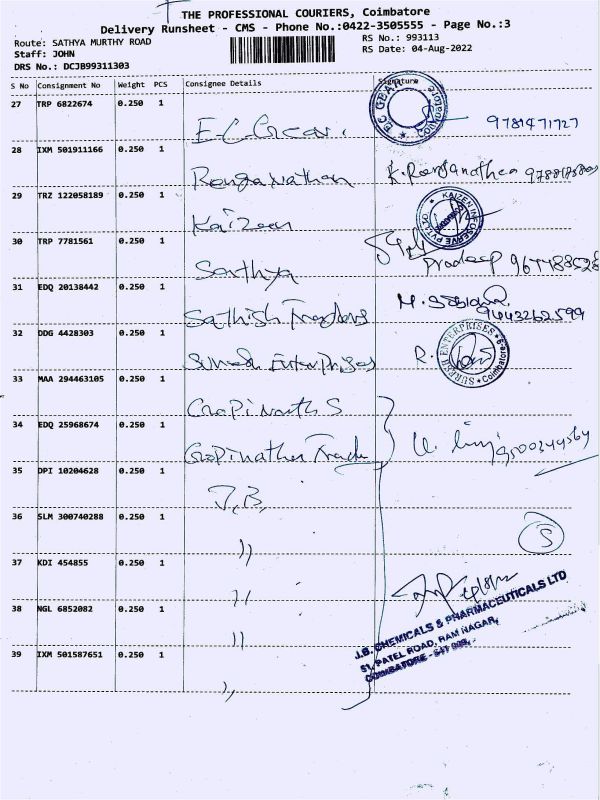 THE PROFESSIONAL COURIERS, Coimbatore
Delivery Runsheet - CMS - Phone No.:0422-3505555 - Page No.:3
Route: SATHYA MURTHY ROAD RS No.: 993113
Staff: JOHN RS Date: 04-Aug-2022
DRS No.: DCJB99311303
S No Consignment No Weight PCS Consignee Details Signature
27 TRP 6822674 0.250 1
E.C. Gear. EC GEAR Coimbatore
28 IXM 501911166 0.250 1
Renganathan
29 TRZ 122058189 0.250 1
Kaizen KAIZEN INFOSERVE PVT LTD
30 TRP 7781561 0.250 1
Sathya Pradeep
31 EDQ 20138442 0.250 1
Sathish Traders 9443262599
32 DDG 4428303 0.250 1
Suresh Enterprises R. SURESH ENTERPRISES Coimbatore
33 MAA 294463105 0.250 1
Gopinath S
34 EDQ 25968674 0.250 1
Gopinathen Trade 9500349569
35 DPI 10204628 0.250 1
J.B,
36 SLM 300740288 0.250 1
)) 5
37 KDI 454855 0.250 1
))
38 NGL 6852082 0.250 1
)) J.B. CHEMICALS & PHARMACEUTICALS LTD
51, PATEL ROAD, RAM NAGAR,
COIMBATORE - 641 009.
39 IXM 501587651 0.250 1
))